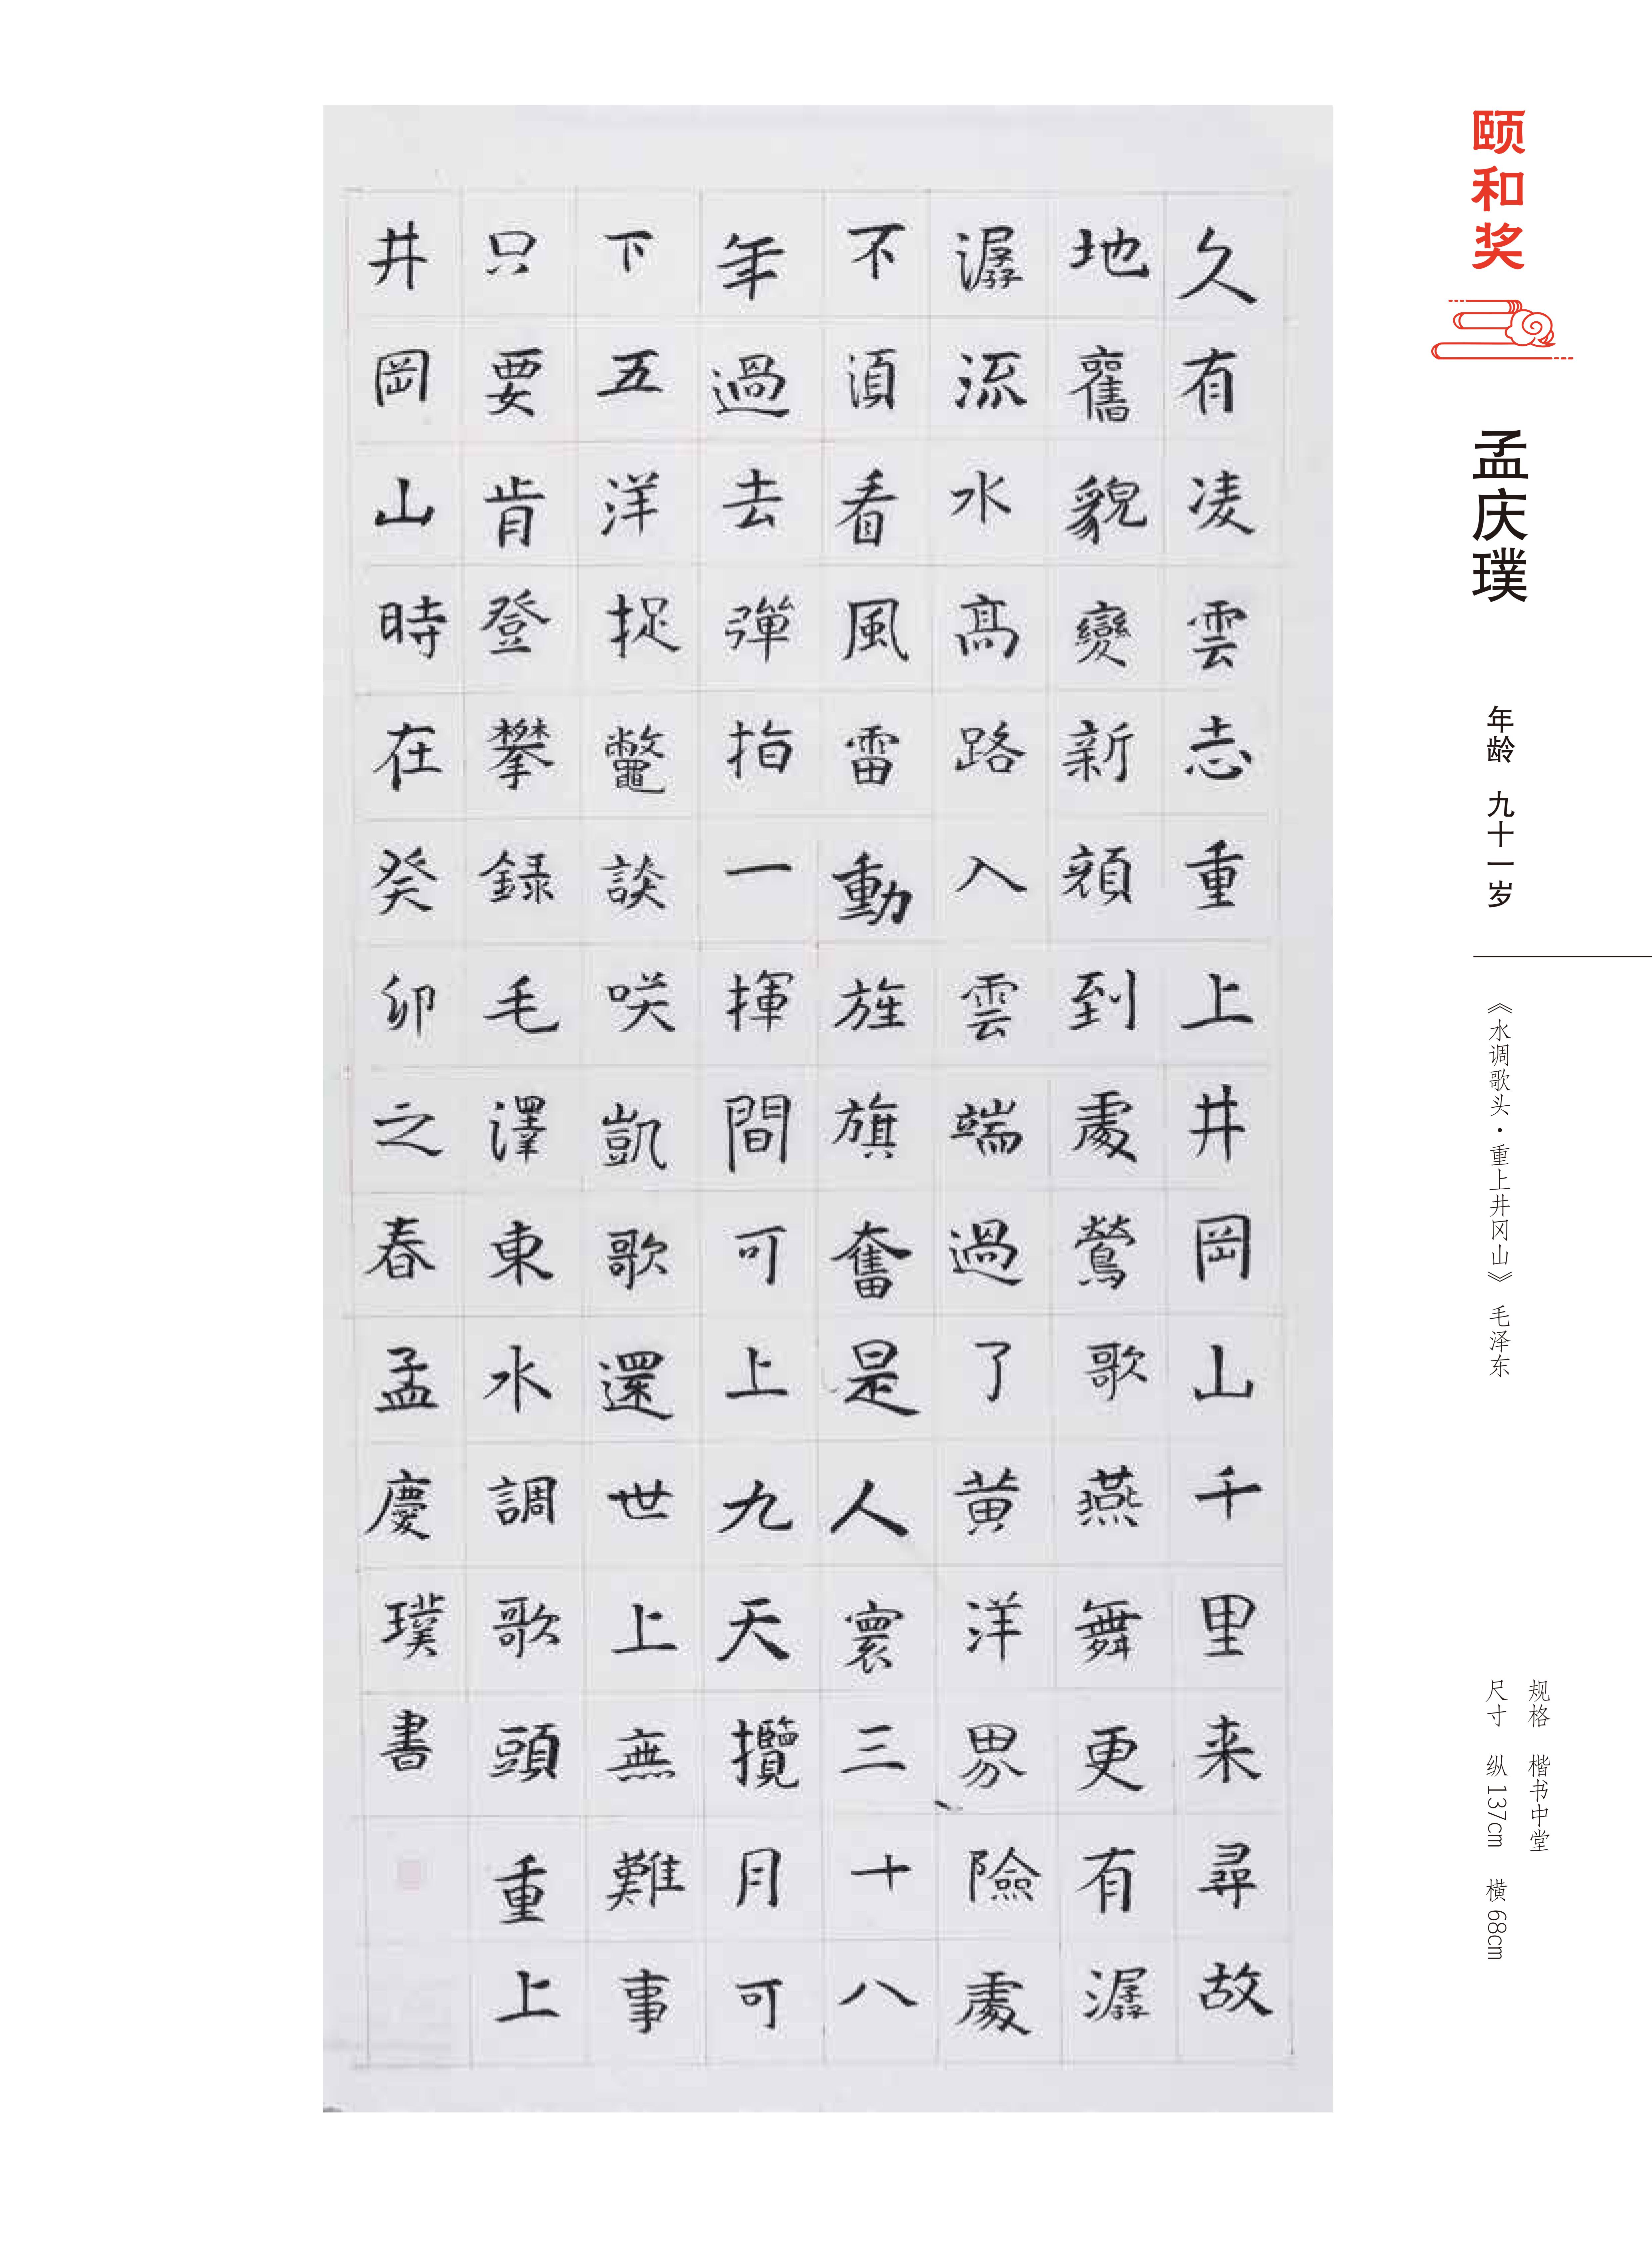 颐和奖
孟庆璞
年龄 九十一岁
《水调歌头·重上井冈山》 毛泽东
规格 楷书中堂
尺寸 纵137cm 横68cm
久有凌雲志重上井岡山千里来尋故
地舊貌變新顔到處鶯歌燕舞更有潺
潺流水高路入雲端過了黄洋界險處
不須看風雷動旌旗奮是人寰三十八
年過去彈指一揮間可上九天攬月可
下五洋捉鼈談咲凱歌還世上無難事
只要肯登攀錄毛澤東水調歌頭重上
井岡山時在癸卯之春孟慶璞書